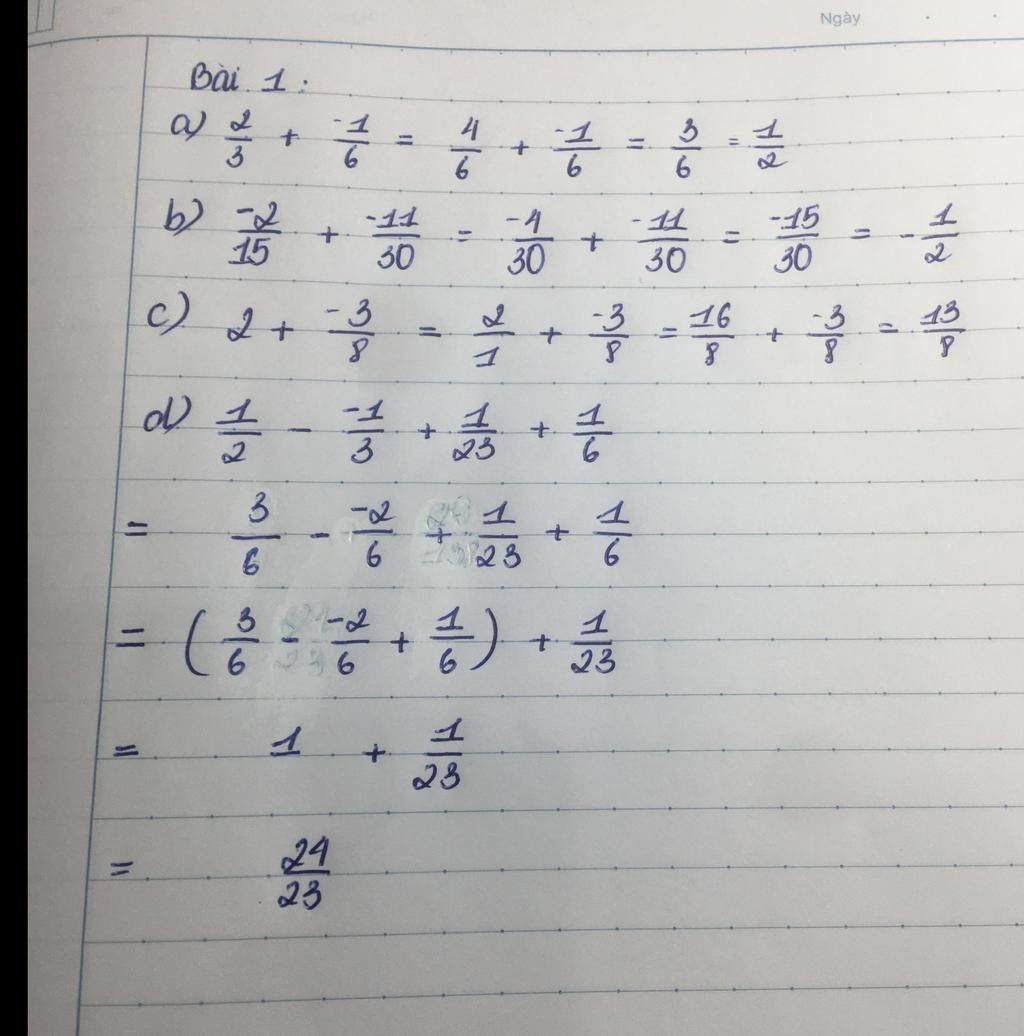 Ngày
Bài 1:
a) 2/3 + -1/6 = 4/6 + -1/6 = 3/6 = 1/2
b) -2/15 + -11/30 = -4/30 + -11/30 = -15/30 = -1/2
c) 2 + -3/8 = 2/1 + -3/8 = 16/8 + -3/8 = 13/8
d) 1/2 - -1/3 + 1/23 + 1/6
= 3/6 - -2/6 + 1/23 + 1/6
= (3/6 - -2/6 + 1/6) + 1/23
= 1 + 1/23
= 24/23